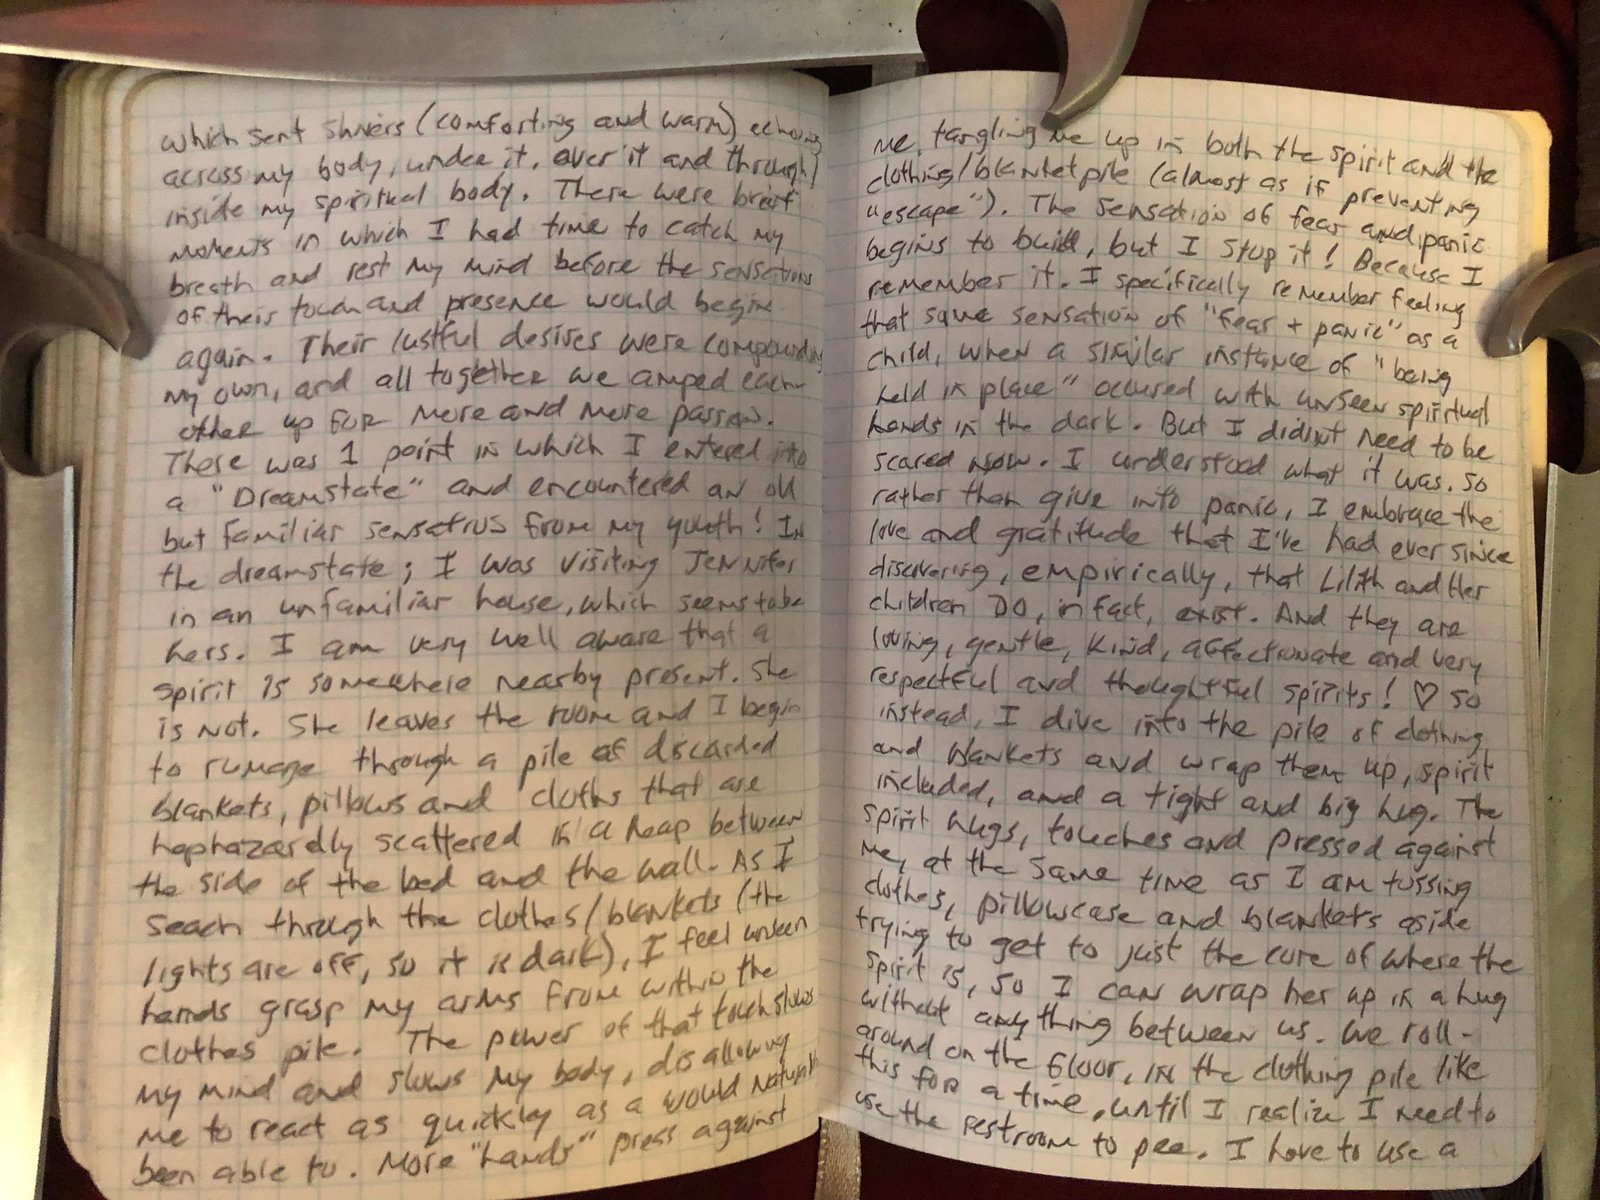 which sent shivers (comforting and warm) echoing
across my body, under it, over it and through/
inside my spiritual body. There were breif
moments in which I had time to catch my
breath and rest my mind before the sensations
of their touch and presence would begin
again. Their lustful desires were compounding
my own, and all together we amped each
other up for more and more passion.
There was 1 point in which I entered into
a "Dreamstate" and encountered an old
but familiar sensations from my youth! In
the dreamstate; I was visiting Jennifer
in an unfamiliar house, which seems to be
hers. I am very well aware that a
spirit is somewhere nearby present. She
is not. She leaves the room and I begin
to rumage through a pile of discarded
blankets, pillows and cloths that are
haphazardly scattered in a heap between
the side of the bed and the wall. As I
seach through the clothes/blankets (the
lights are off, so it is dark), I feel unseen
hands grasp my arms from within the
clothes pile. The power of that touch slows
my mind and slows my body, disallowing
me to react as quickly as a would naturally
been able to. More "hands" press against
me, tangling me up in both the spirit and the
clothing/blanket pile (almost as if preventing
"escape"). The sensation of fear and panic
begins to build, but I stop it! Because I
remember it. I specifically remember feeling
that same sensation of "fear + panic" as a
child, when a similar instance of "being
held in place" occured with unseen spiritual
hands in the dark. But I didint need to be
scared now. I understood what it was. So
rather than give into panic, I embrace the
love and gratitude that I've had ever since
discovering, empirically, that Lilith and Her
children DO, in fact, exist. And they are
loving, gentle, kind, affectionate and very
respectful and thoughtful spirits! ♡ So
instead, I dive into the pile of clothing
and blankets and wrap them up, spirit
included, and a tight and big hug. The
spirit hugs, touches and pressed against
me, at the same time as I am tossing
clothes, pillowcase and blankets aside
trying to get to just the core of where the
spirit is, so I can wrap her up in a hug
without anything between us. We roll-
around on the floor, in the clothing pile like
this for a time, until I realize I need to
use the restroom to pee. I have to use a